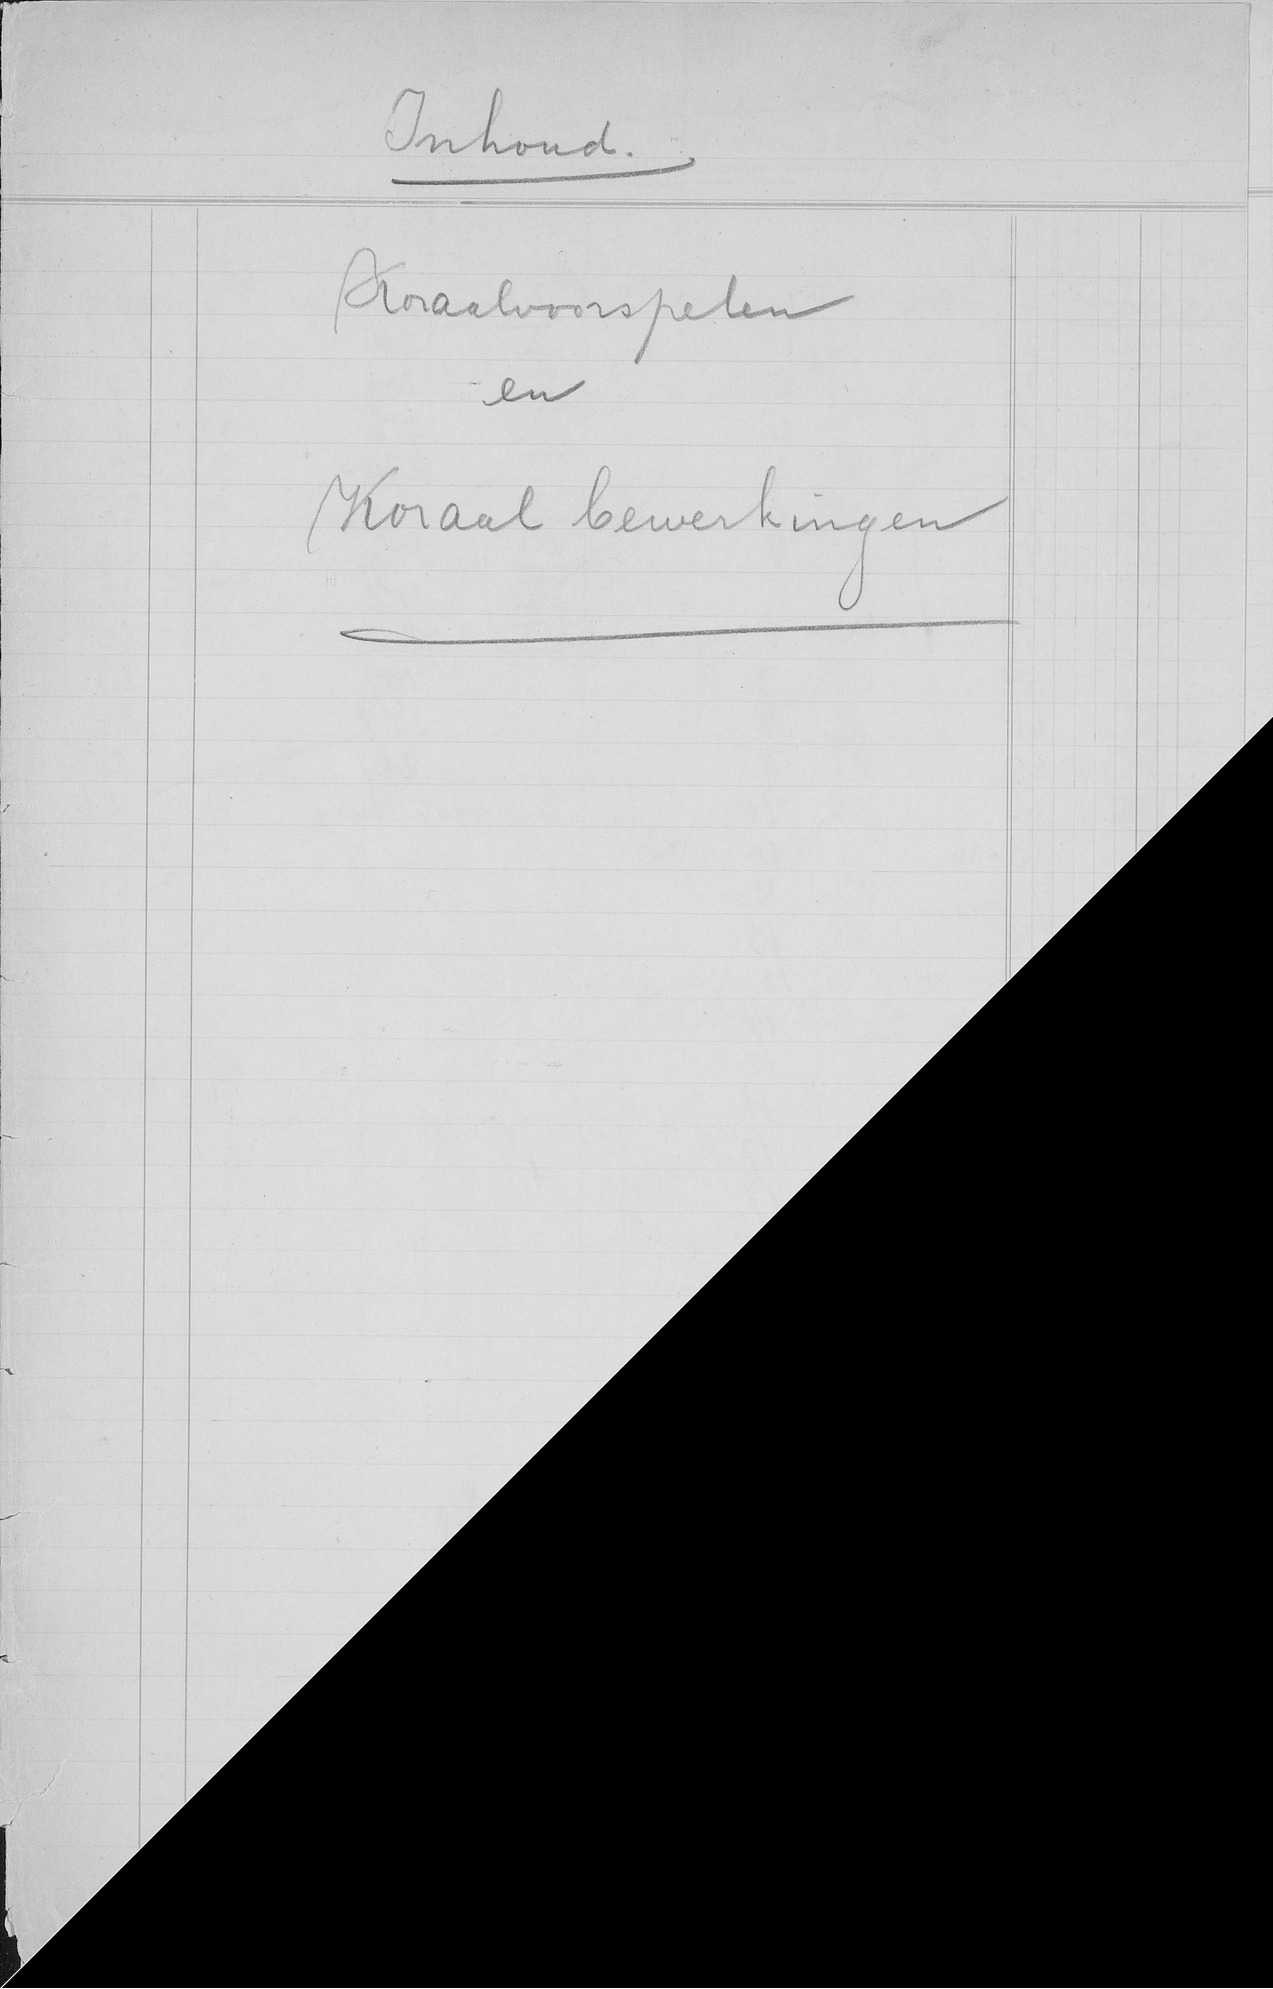 Inhoud.
Koraalvoorspelen
en
Koraal bewerkingen